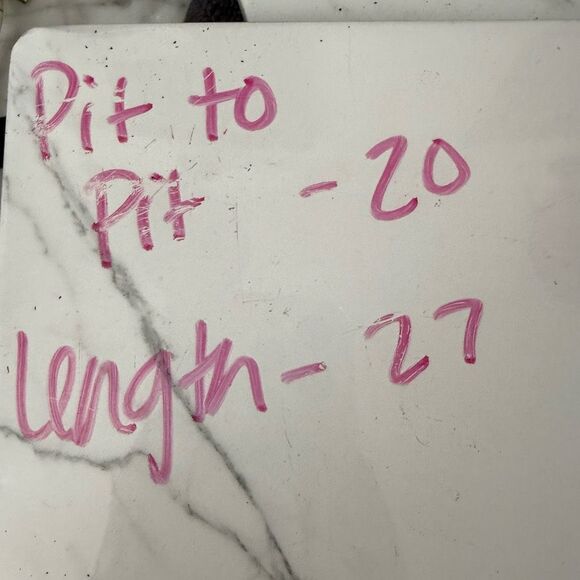 Pit to
Pit - 20
length - 27